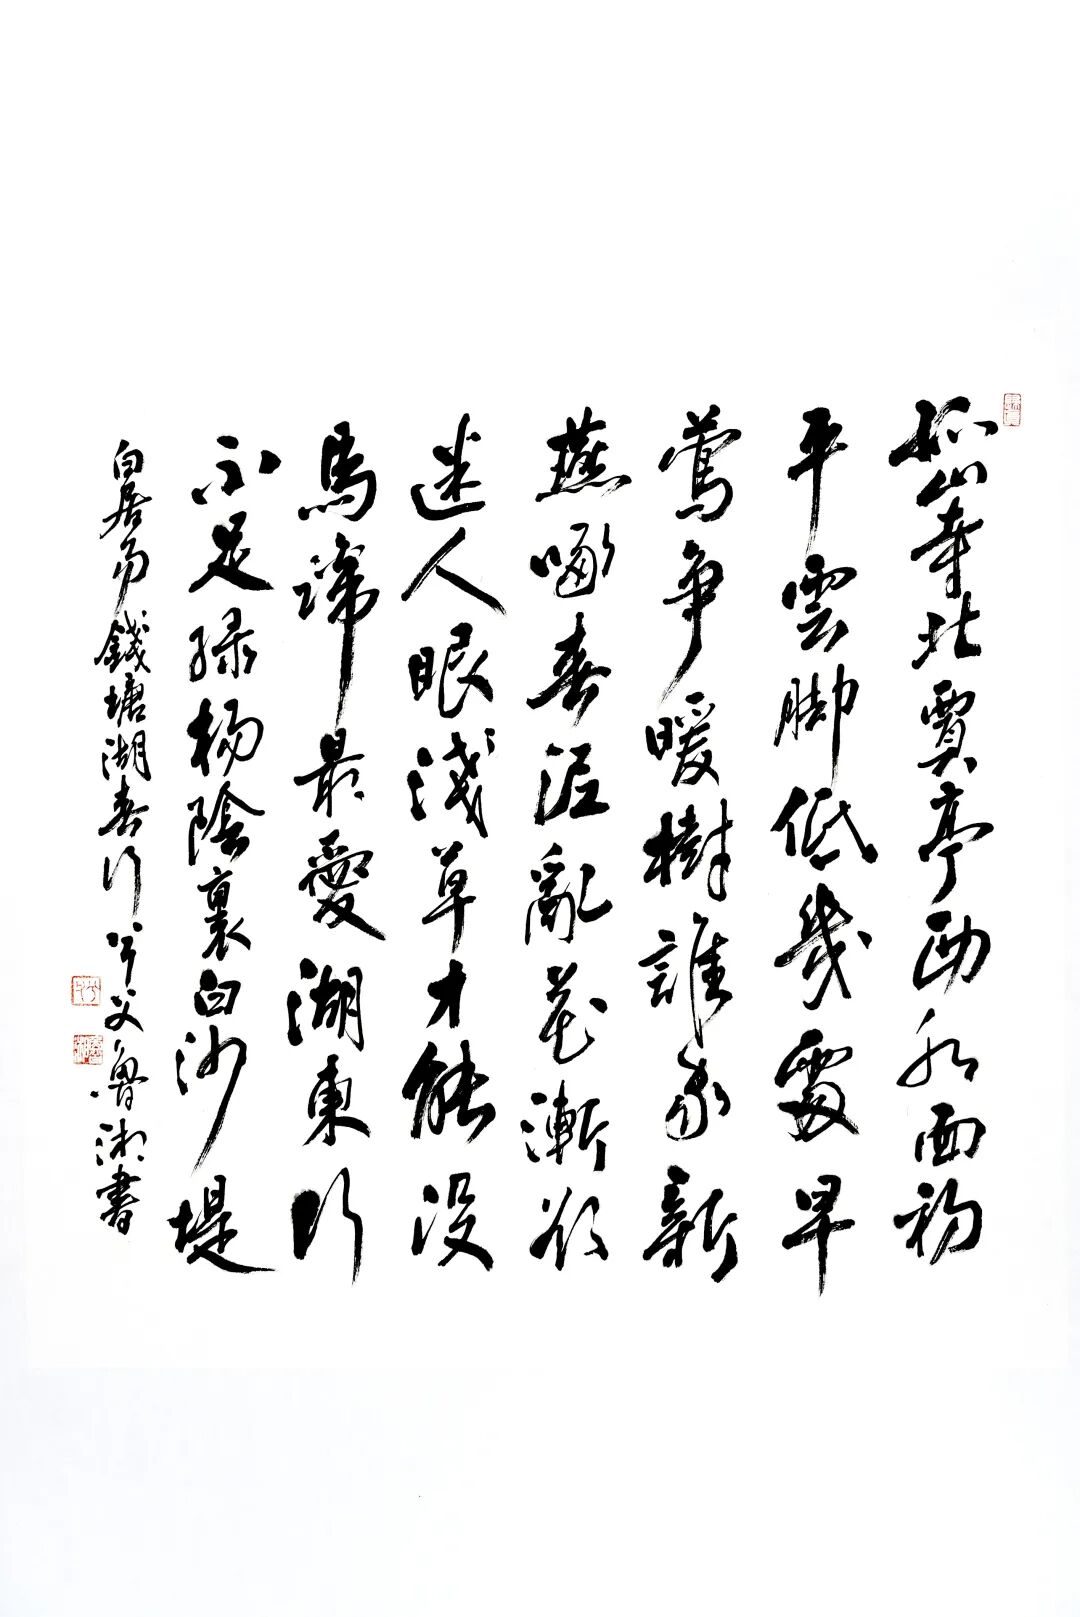 孤山寺北賈亭西水面初
平雲脚低幾處早
鶯争暖樹誰家新
燕啄春泥亂花漸欲
迷人眼淺草才能没
馬蹄最愛湖東行
不足緑楊陰裏白沙堤
白居易錢塘湖春行兮父魯湘書